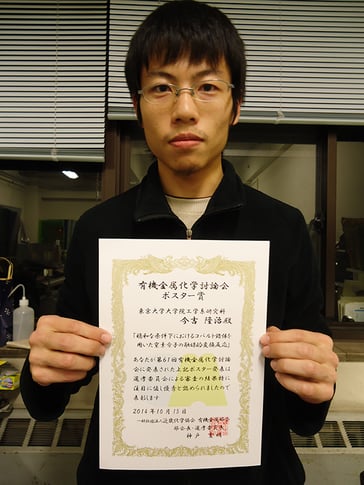 有機金属化学討論会
ポスター賞
東京大学大学院工学系研究科
今吉 隆治殿
「穏和な条件下におけるコバルト錯体を
用いた窒素分子の触媒的変換反応」
あなたが第61回有機金属化学討論
会に発表された上記ポスター発表は
選考委員会による審査の結果特に
注目に値し優秀と認められましたので
表彰します
2014年10月15日
一般社団法人近畿化学協会 有機金属部会
部会長・選考委員長
神戸 宣明